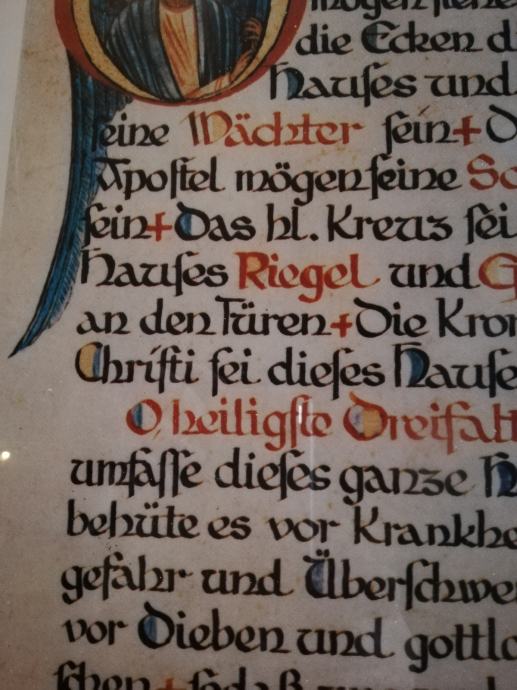 die Ecken d
Hauses und
seine Wächter sein+D
Apostel mögen seine Sc
sein+Das hl. Kreuz sei
Hauses Riegel und
an den Türen+Die Kron
Christi sei dieses Hause
O, heiligste Dreifalt
umfasse dieses ganze H
behüte es vor Krankhe
gefahr und Überschwe
vor Dieben und gottlo
schen+sodaß